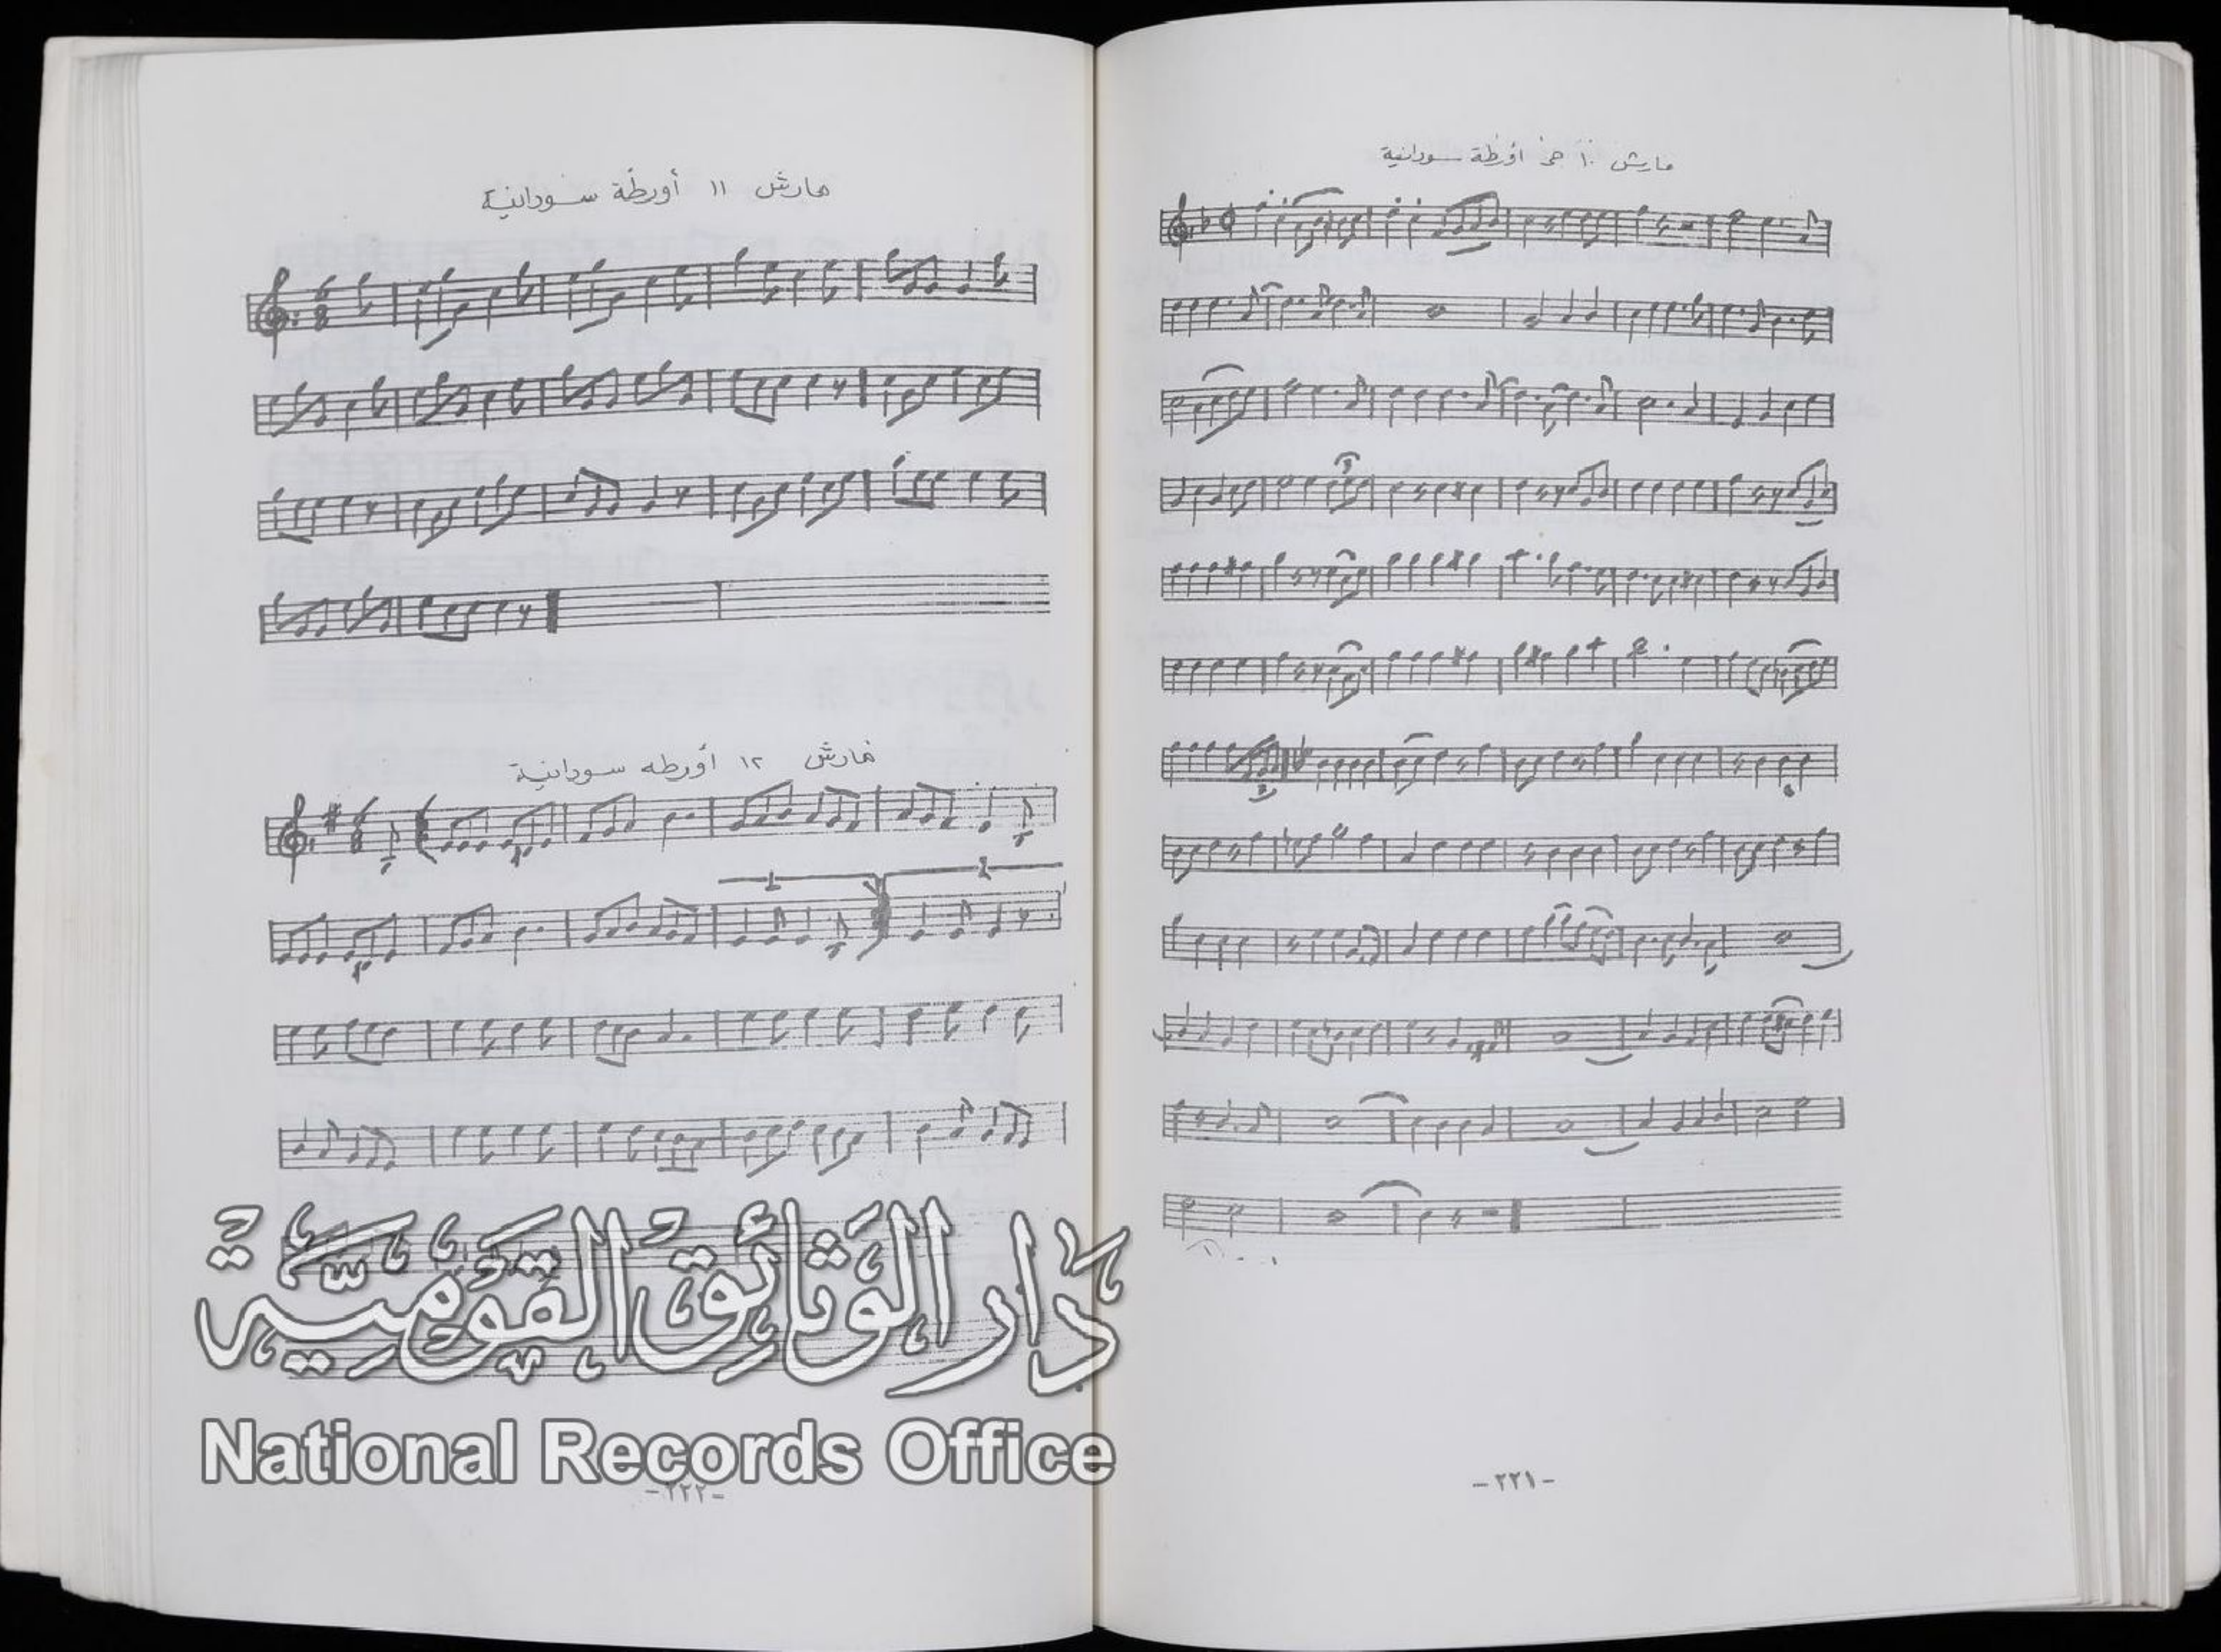 مارش ١٠ جي أورطة سودانية
-٢٢١-
مارش ١١ أورطة سودانية
مارش ١٢ أورطه سودانية
1
2
دَار الوَثائِق القَوْميَّة
National Records Office
-٢٢٢-